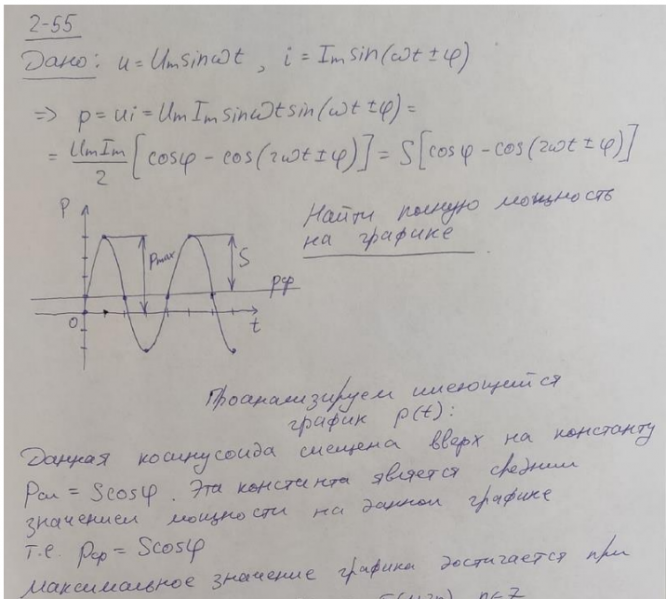 2-55
Дано: u = Um sin ωt , i = Im sin(ωt ± φ)
=> p = ui = Um Im sin ωt sin(ωt ± φ) =
= Um Im / 2 [cos φ - cos(2ωt ± φ)] = S[cos φ - cos(2ωt ± φ)]
Найти полную мощность
на графике
P
Pmax
S
pср
0
t
Проанализируем имеющийся
график p(t):
Данная косинусоида смещена вверх на константу
Pсм = S cos φ. Эта константа является средним
значением мощности на данном графике
т.е. pср = S cos φ
Максимальное значение графика достигается при
n∈Z